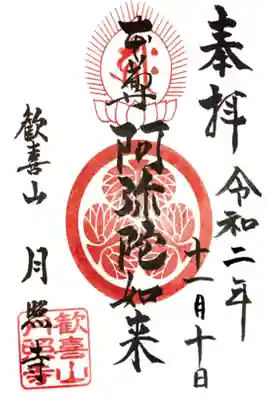 奉拝
令和二年
十一月十日
本尊阿弥陀如来
歓喜山 月照寺
歓喜山
月照寺